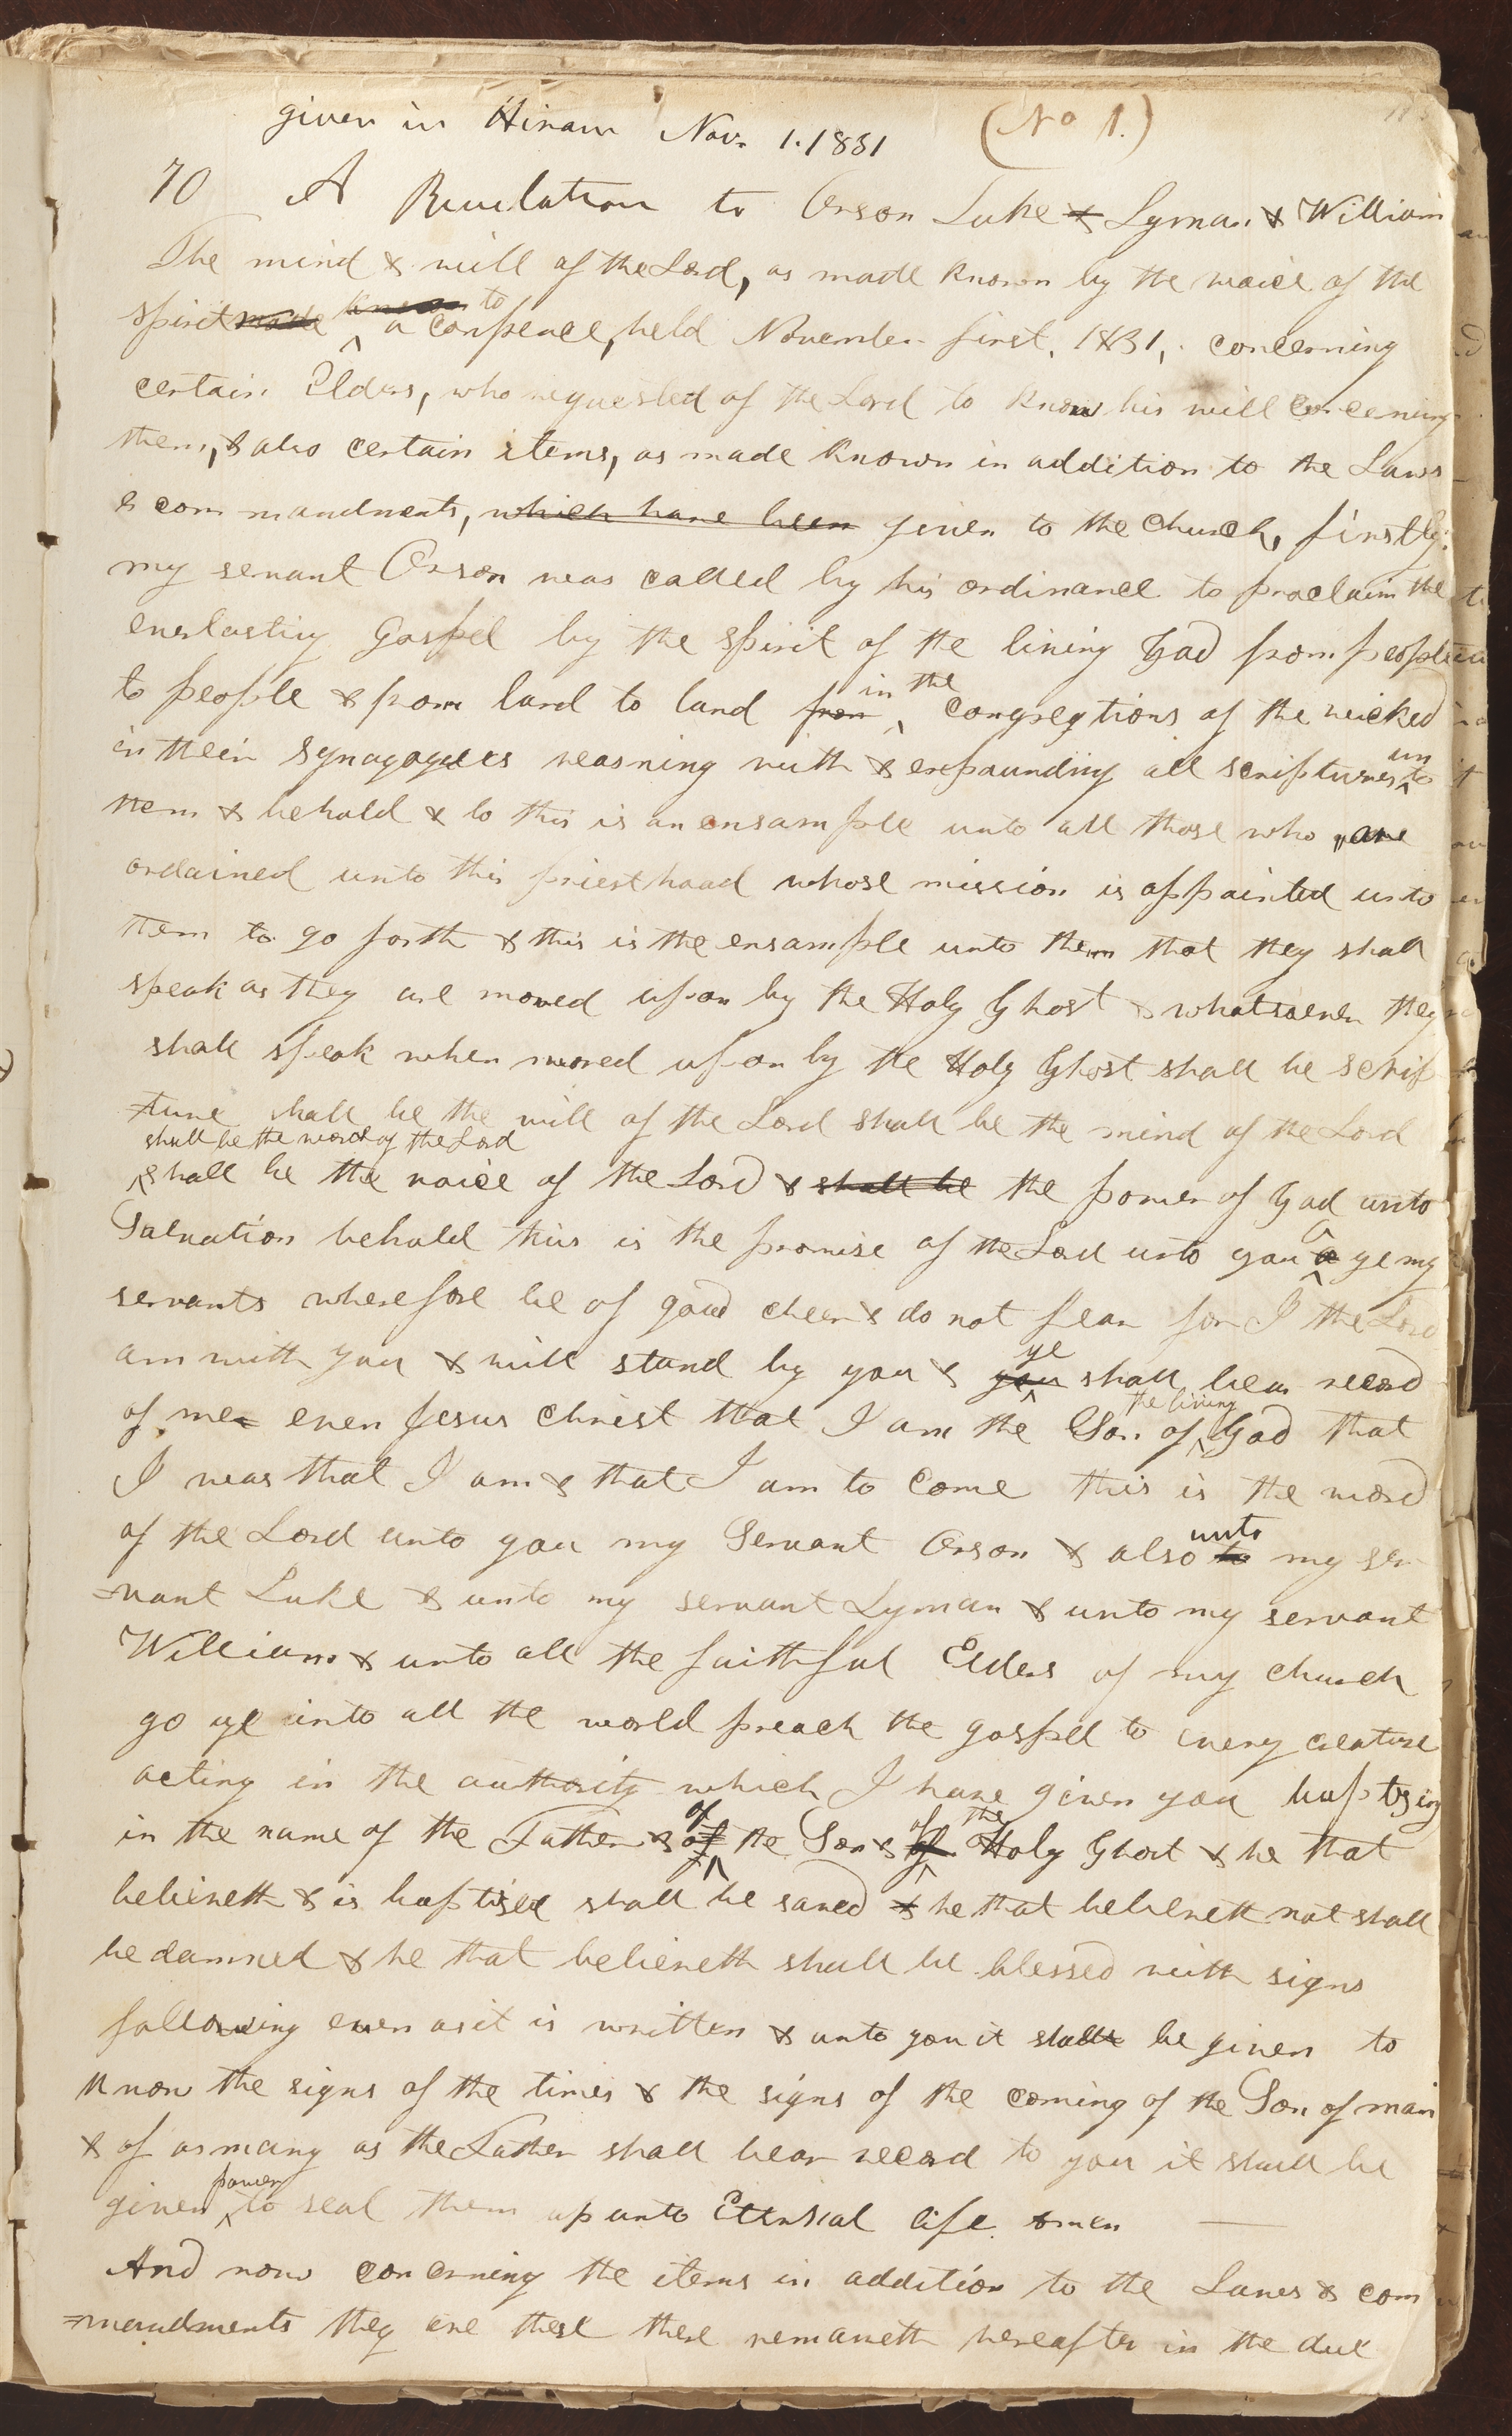 given in Hiram Nov. 1. 1831 (No 1.)
70 A Revelation to Orson Luke & Lyman & William
The mind & will of the Lord, as made known by the voice of the
spirit made known to a Confrence, held November first, 1831, concerning
certain Elders, who requested of the Lord to know his will concerning
them, & also certain items, as made known in addition to the Laws
& commandments, which have been given to the church, firstly:
my servant Orson was called by his ordinance to proclaim the
everlasting Gospel by the spirit of the living God from people
to people & from land to land from in the congregtions of the wicked
in their Synagogues reasning with & expounding all scriptures unto
them & behold & lo this is an ensample unto all those who are
ordained unto this priesthood whose mission is appointed unto
them to go forth & this is the ensample unto them that they shall
speak as they are moved upon by the Holy Ghost & whatsoever they
shall speak when moved upon by the Holy Ghost shall be scrip
=ture shall be the will of the Lord shall be the mind of the Lord
shall be the word of the Lord
shall be the voice of the Lord & shall be the power of God unto
Salvation behold this is the promise of the Lord unto you O ye my
servants wherefore be of good cheer & do not fear for I the Lord
am with you & will stand by you & you ye shall bear record
of me even Jesus Christ that I am the Son of the living God that
I was that I am & that I am to come this is the word
of the Lord unto you my Servant Orson & also to unto my ser
=vant Luke & unto my servant Lyman & unto my servant
William & unto all the faithful Elders of my church
go ye into all the world preach the gospel to every creature
acting in the authority which I have given you baptising
in the name of the Father & of of the Son & of of the Holy Ghost & he that
believeth & is baptised shall be saved & he that believeth not shall
be damned & he that believeth shall be blessed with signs
following even as it is written & unto you it shall be given to
know the signs of the times & the signs of the coming of the Son of man
& of as many as the Father shall bear record to you it shall be
given power to seal them up unto Eternal life amen
And now concerning the items in addition to the Laws & com
=mandments they are these there remaneth hereafter in the due